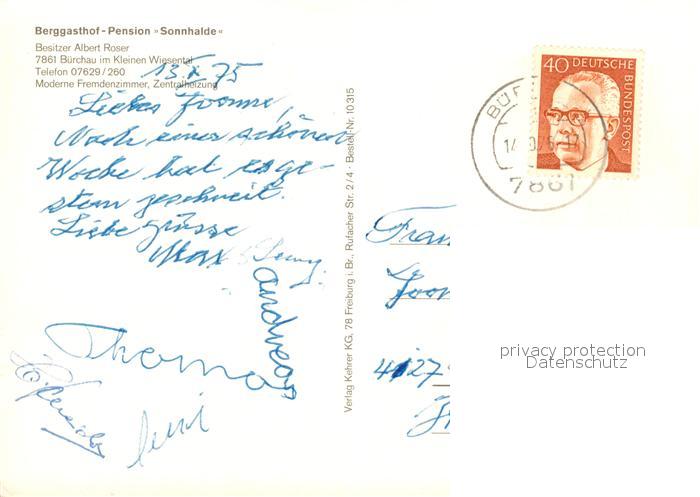 Berggasthof-Pension »Sonnhalde«
Besitzer Albert Roser
7861 Bürchau im Kleinen Wiesental
Telefon 07629/260
Moderne Fremdenzimmer, Zentralheizung
13.X 75
Liebes Yvonne,
Nach einer schönen
Woche hat es ge-
stern geschneit.
Liebe Grüsse
Max
andreas
Thomas
Verlag Kehrer KG, 78 Freiburg i. Br., Rufacher Str. 2/4 · Bestell-Nr. 10 315
40 DEUTSCHE
BUNDESPOST
BÜR
7861
Frau
4127
privacy protection
Datenschutz